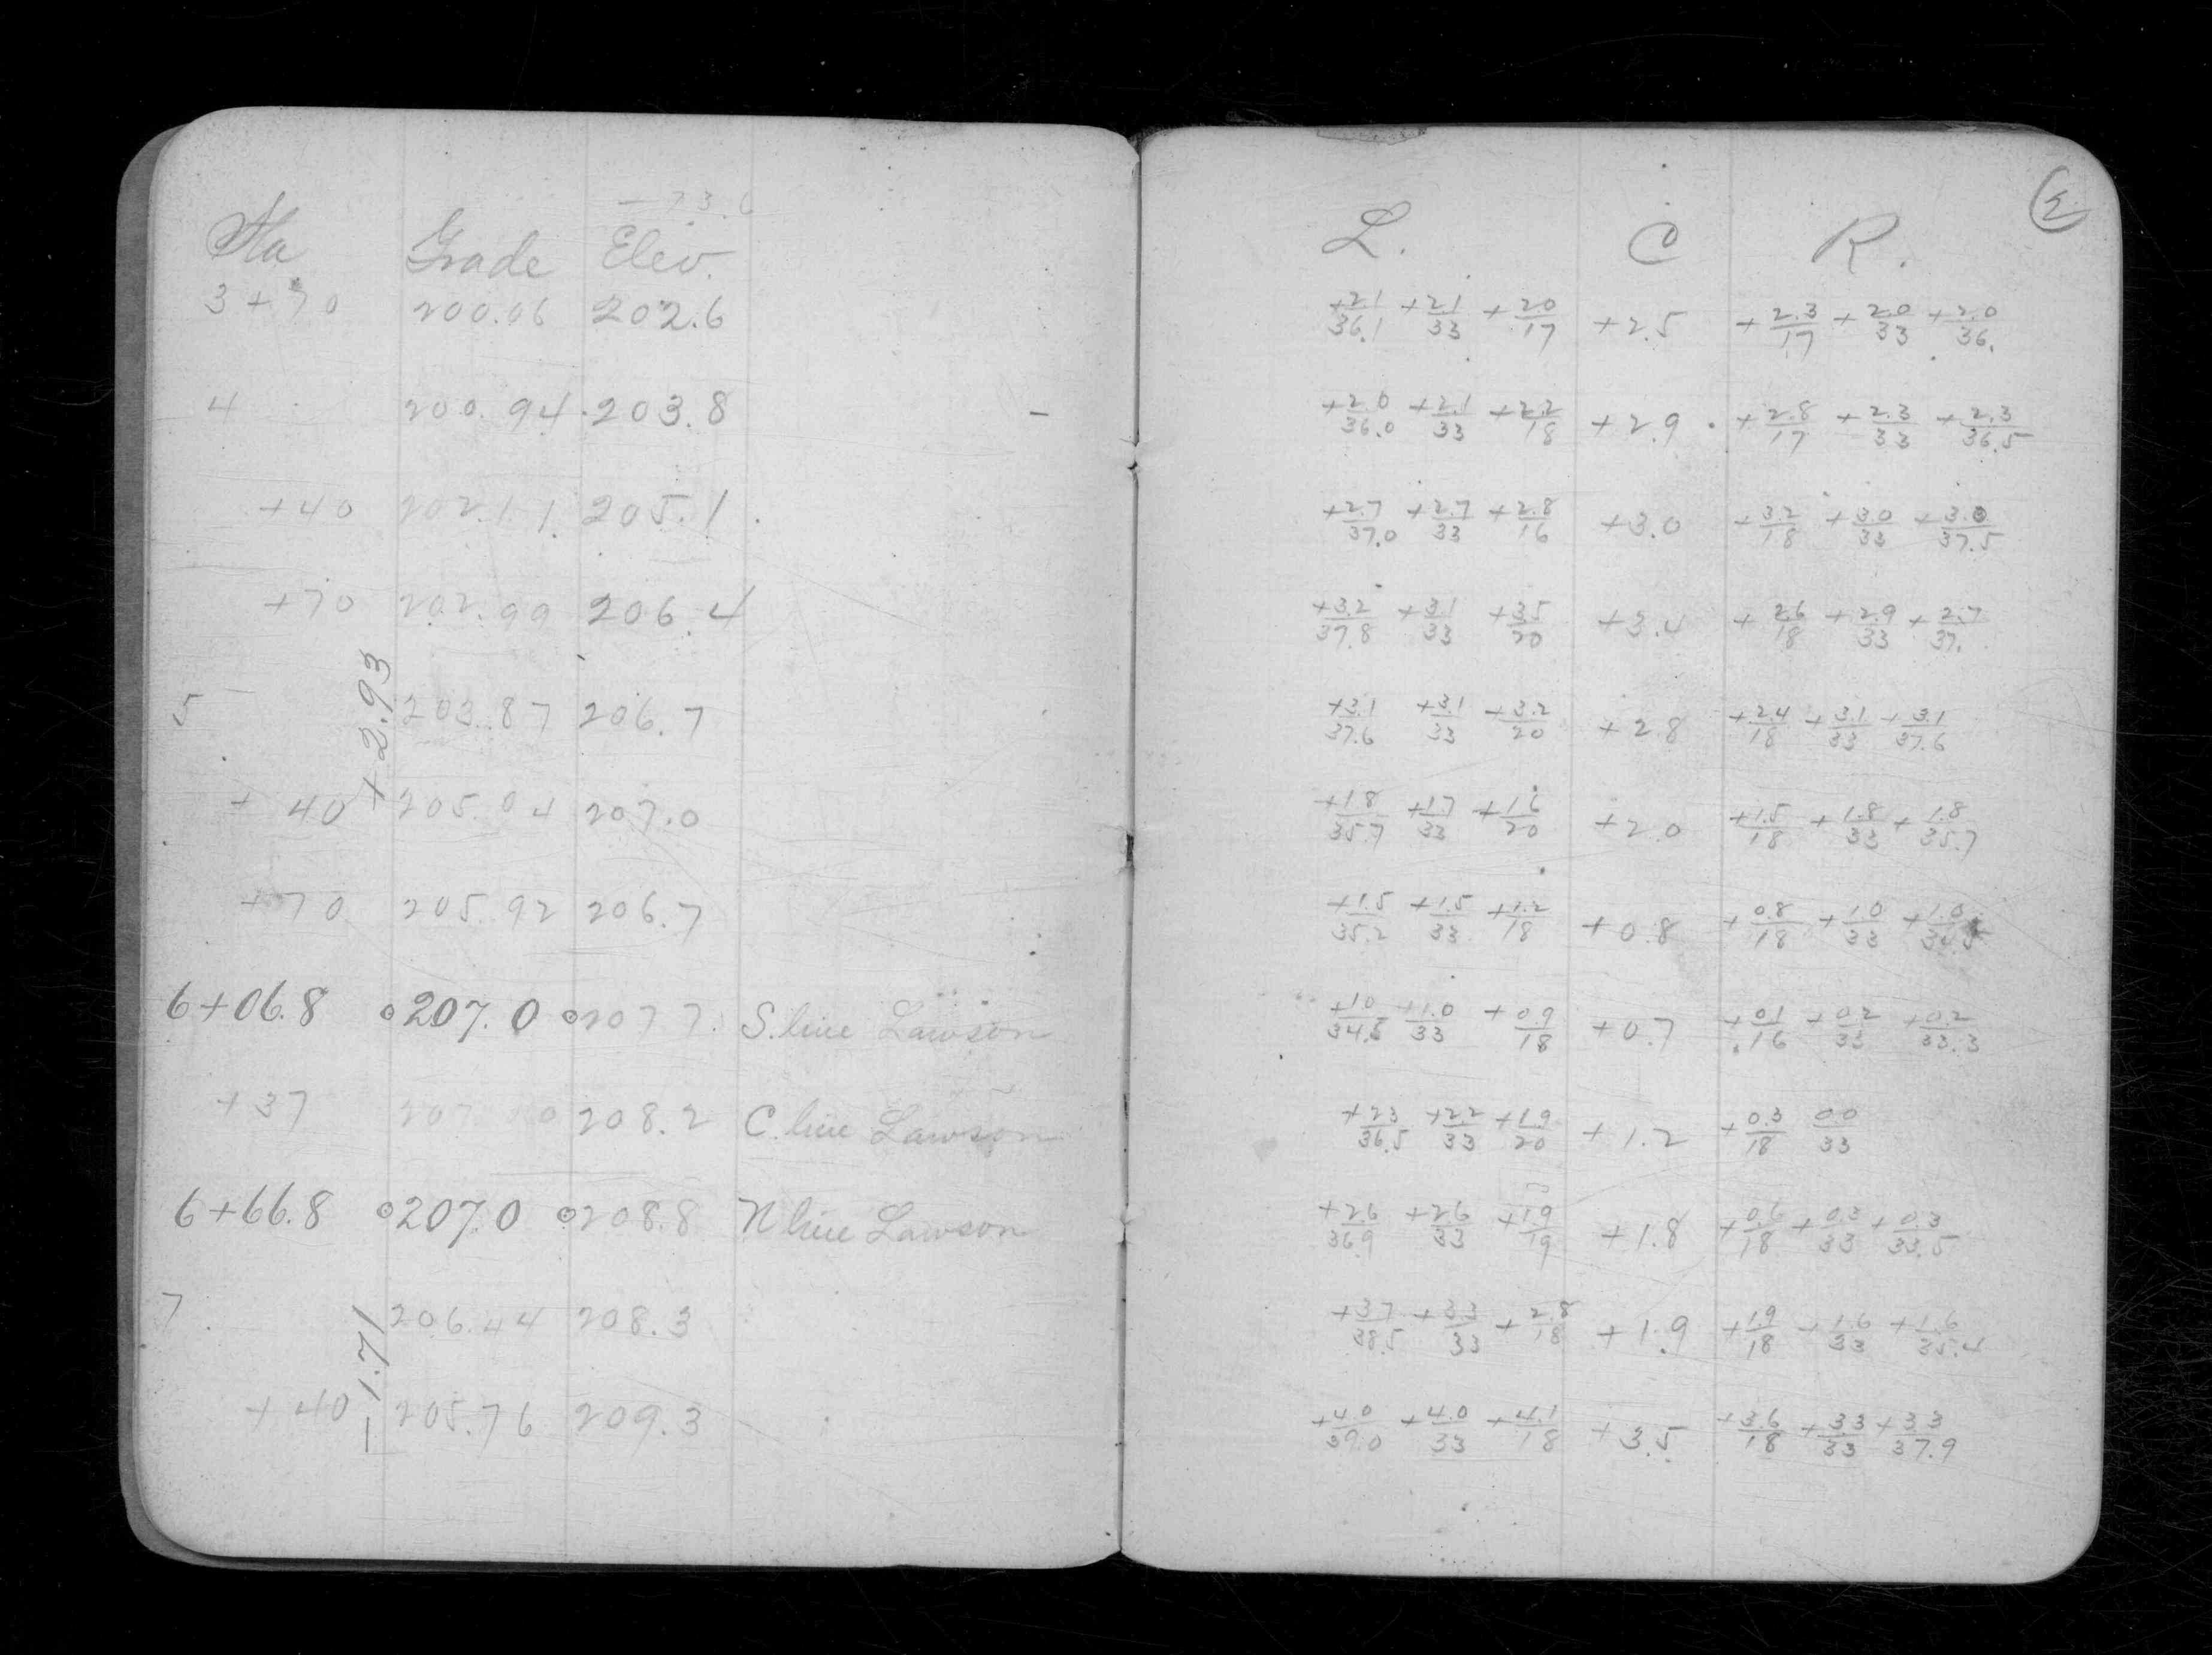 - 73.6
Sta Grade Elev. L. C R. 2
3+70 200.06 202.6 +2.1/36.1 +2.1/33 +2.0/17 +2.5 +2.3/17 +2.0/33 +2.0/36.
4 200.94 203.8 - +2.0/36.0 +2.1/33 +2.2/18 +2.9 +2.8/17 +2.3/33 +2.3/36.5
+40 202.11 205.1 +2.7/37.0 +2.7/33 +2.8/16 +3.0 +3.2/18 +3.0/33 +3.0/37.5
+70 202.99 206.4 +3.2/37.8 +3.1/33 +3.5/20 +3.4 +2.6/18 +2.9/33 +2.7/37.
+2.93
5 203.87 206.7 +3.1/37.6 +3.1/33 +3.2/20 +2.8 +2.4/18 +3.1/33 +3.1/37.6
+40 205.04 207.0 +1.8/35.7 +1.7/33 +1.6/20 +2.0 +1.5/18 +1.8/33 +1.8/35.7
+70 205.92 206.7 +1.5/35.2 +1.5/33 +1.2/18 +0.8 +0.8/18 +1.0/33 +1.0/34.5
6+06.8 207.0 207.7 S. line Lawson +1.0/34.5 +1.0/33 +0.9/18 +0.7 +0.1/16 +0.2/33 +0.2/33.3
+37 208.2 C. line Lawson +2.3/36.5 +2.2/33 +1.9/20 +1.2 +0.3/18 0.0/33
6+66.8 207.0 208.8 N line Lawson +2.6/36.9 +2.6/33 +1.9/19 +1.8 +0.6/18 +0.3/33 +0.3/33.5
7 206.44 208.3 +3.7/38.5 +3.3/33 +2.8/18 +1.9 +1.9/18 +1.6/33 +1.6/35.4
-1.71
+40 205.76 209.3 +4.0/39.0 +4.0/33 +4.1/18 +3.5 +3.6/18 +3.3/33 +3.3/37.9